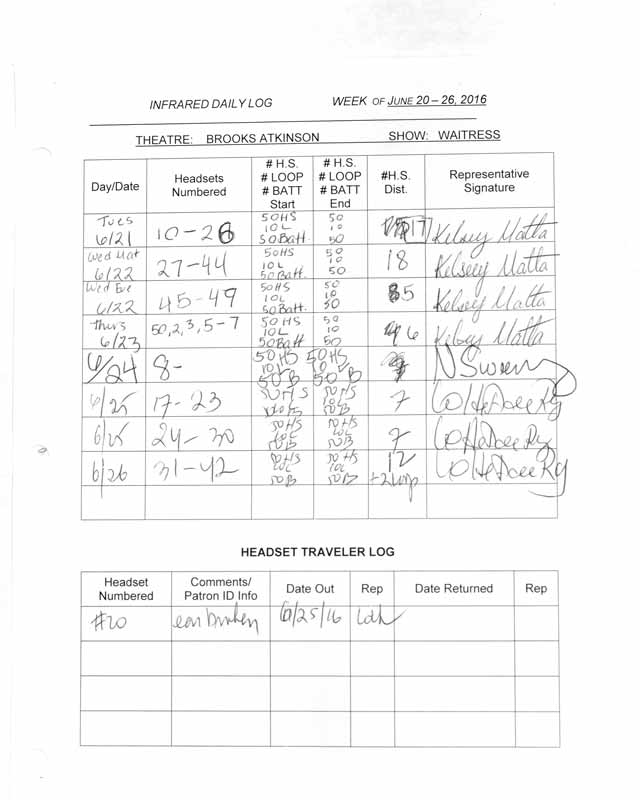 INFRARED DAILY LOG WEEK OF JUNE 20 – 26, 2016
THEATRE: BROOKS ATKINSON SHOW: WAITRESS
Day/Date Headsets Numbered # H.S. # LOOP # BATT Start # H.S. # LOOP # BATT End #H.S. Dist. Representative Signature
Tues 6/21 10-26 50HS 10L 50Batt. 50 10 50 17 Kelsey Matta
Wed Mat 6/22 27-44 50HS 10L 50Batt. 50 10 50 18 Kelsey Matta
Wed Eve 6/22 45-49 50HS 10L 50Batt. 50 10 50 5 Kelsey Matta
Thurs 6/23 50,2,3,5-7 50HS 10L 50Batt 50 10 50 6 Kelsey Matta
6/24 8- 50HS 10L 50B 50HS 10L 50B
6/25 17-23 50HS 10L 50B 50HS 10L 50B 7
6/25 24-30 50HS 10L 50B 50HS 10L 50B 7
6/26 31-42 50HS 10L 50B 50HS 10L 50B 12 +2Loop
HEADSET TRAVELER LOG
Headset Numbered Comments/ Patron ID Info Date Out Rep Date Returned Rep
#20 6/25/16